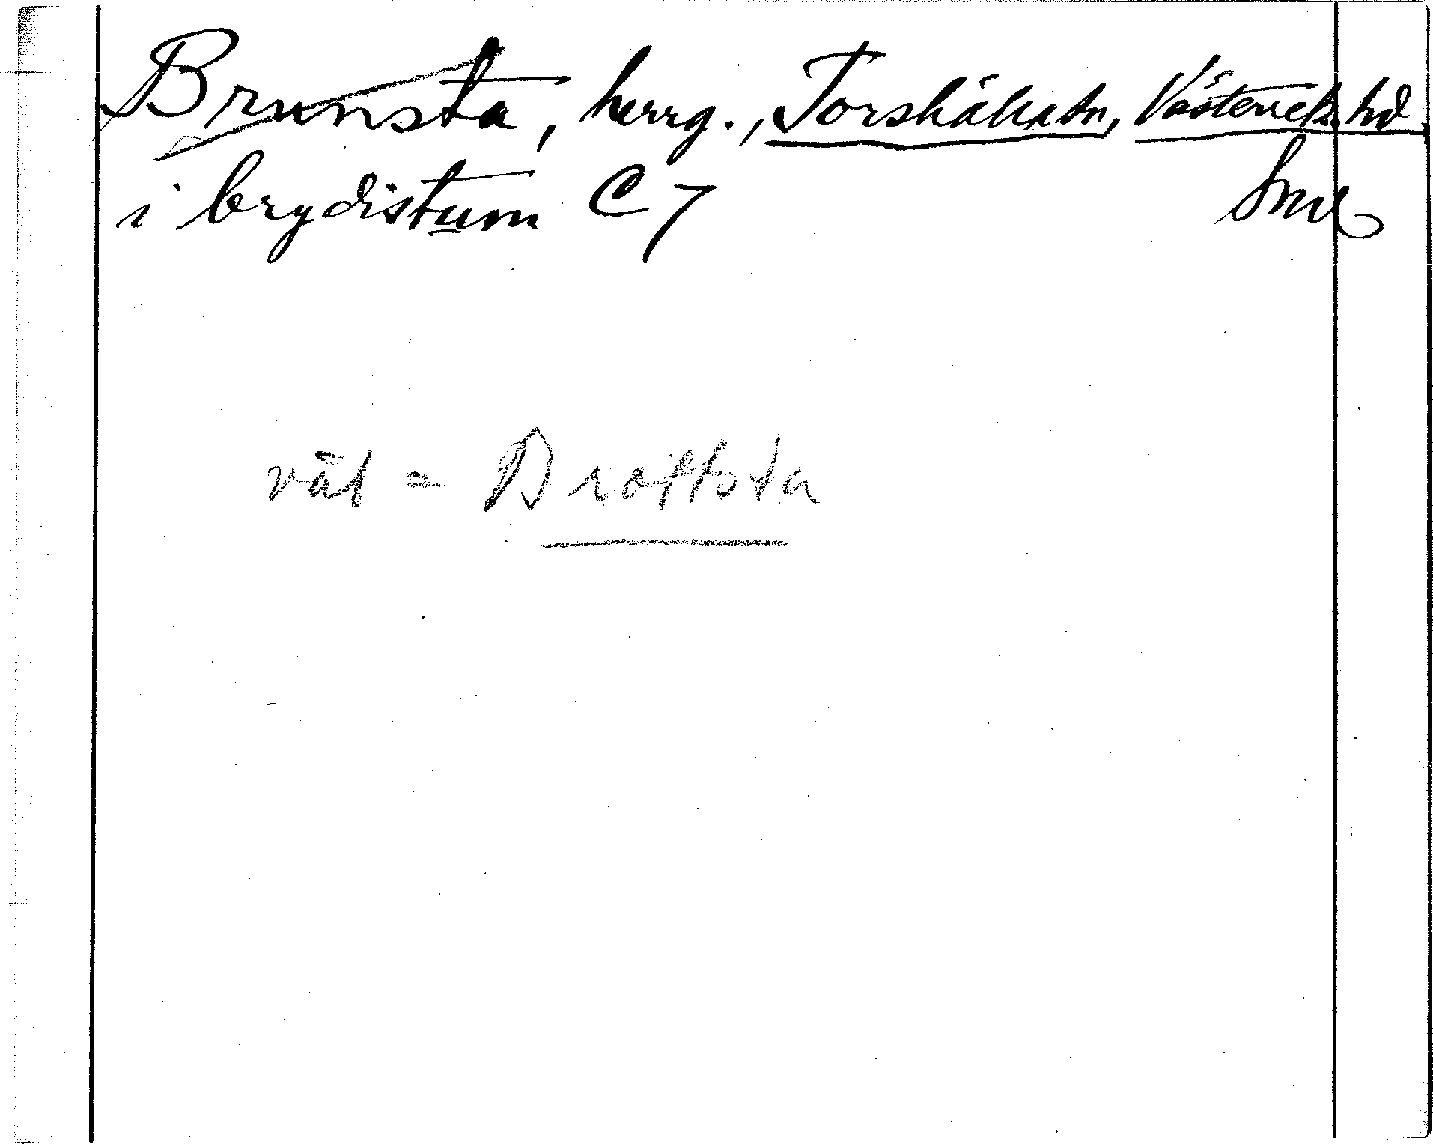 Brunsta, herrg., Torshälla ldn, Västerrek. hd.
i brydistum C 7 Sml
väl = Brottsta